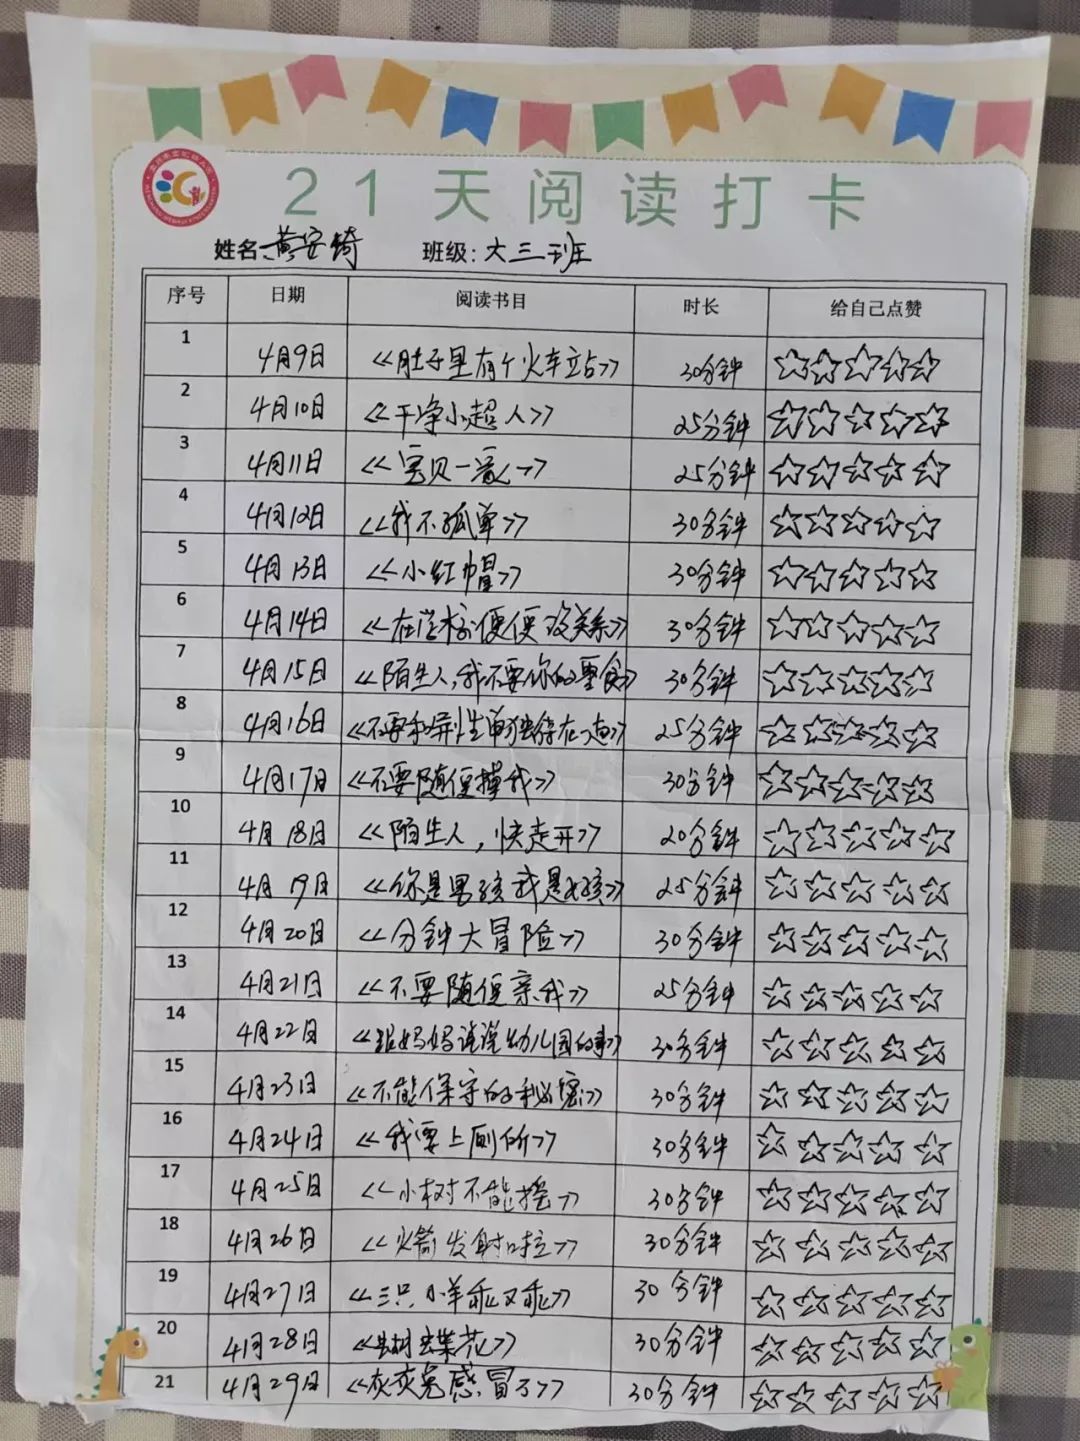 21天阅读打卡
姓名:黄安绮 班级:大三班
序号 日期 阅读书目 时长 给自己点赞
1 4月9日 《肚子里有个火车站》 30分钟 ☆☆☆☆☆
2 4月10日 《干净小超人》 25分钟 ☆☆☆☆☆
3 4月11日 《宝贝一家》 25分钟 ☆☆☆☆☆
4 4月12日 《我不孤单》 30分钟 ☆☆☆☆☆
5 4月13日 《小红帽》 30分钟 ☆☆☆☆☆
6 4月14日 《在学校便便没关系》 30分钟 ☆☆☆☆☆
7 4月15日 《陌生人,我不要你的零食》 30分钟 ☆☆☆☆☆
8 4月16日 《不要和异性单独待在一起》 25分钟 ☆☆☆☆☆
9 4月17日 《不要随便摸我》 30分钟 ☆☆☆☆☆
10 4月18日 《陌生人,快走开》 20分钟 ☆☆☆☆☆
11 4月19日 《你是男孩我是女孩》 25分钟 ☆☆☆☆☆
12 4月20日 《分钟大冒险》 30分钟 ☆☆☆☆☆
13 4月21日 《不要随便亲我》 25分钟 ☆☆☆☆☆
14 4月22日 《跟妈妈说说幼儿园的事》 30分钟 ☆☆☆☆☆
15 4月23日 《不能保守的秘密》 30分钟 ☆☆☆☆☆
16 4月24日 《我要上厕所》 30分钟 ☆☆☆☆☆
17 4月25日 《小树不能摇》 30分钟 ☆☆☆☆☆
18 4月26日 《火箭发射啦》 30分钟 ☆☆☆☆☆
19 4月27日 《三只小羊乖又乖》 30分钟 ☆☆☆☆☆
20 4月28日 《蝴蝶花》 30分钟 ☆☆☆☆☆
21 4月29日 《灰灰兔感冒了》 30分钟 ☆☆☆☆☆